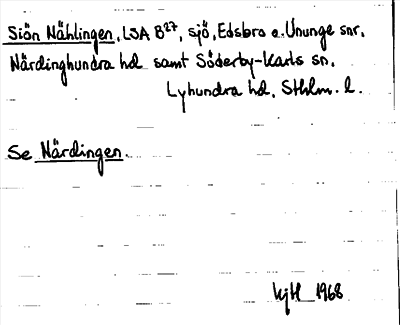 Siön Nählingen, LSA B27, sjö, Edsbro o. Ununge snr,
Närdinghundra hd samt Söderby-Karls sn,
Lyhundra hd, Sthlm. l.
Se Närdingen.
KjH 1968